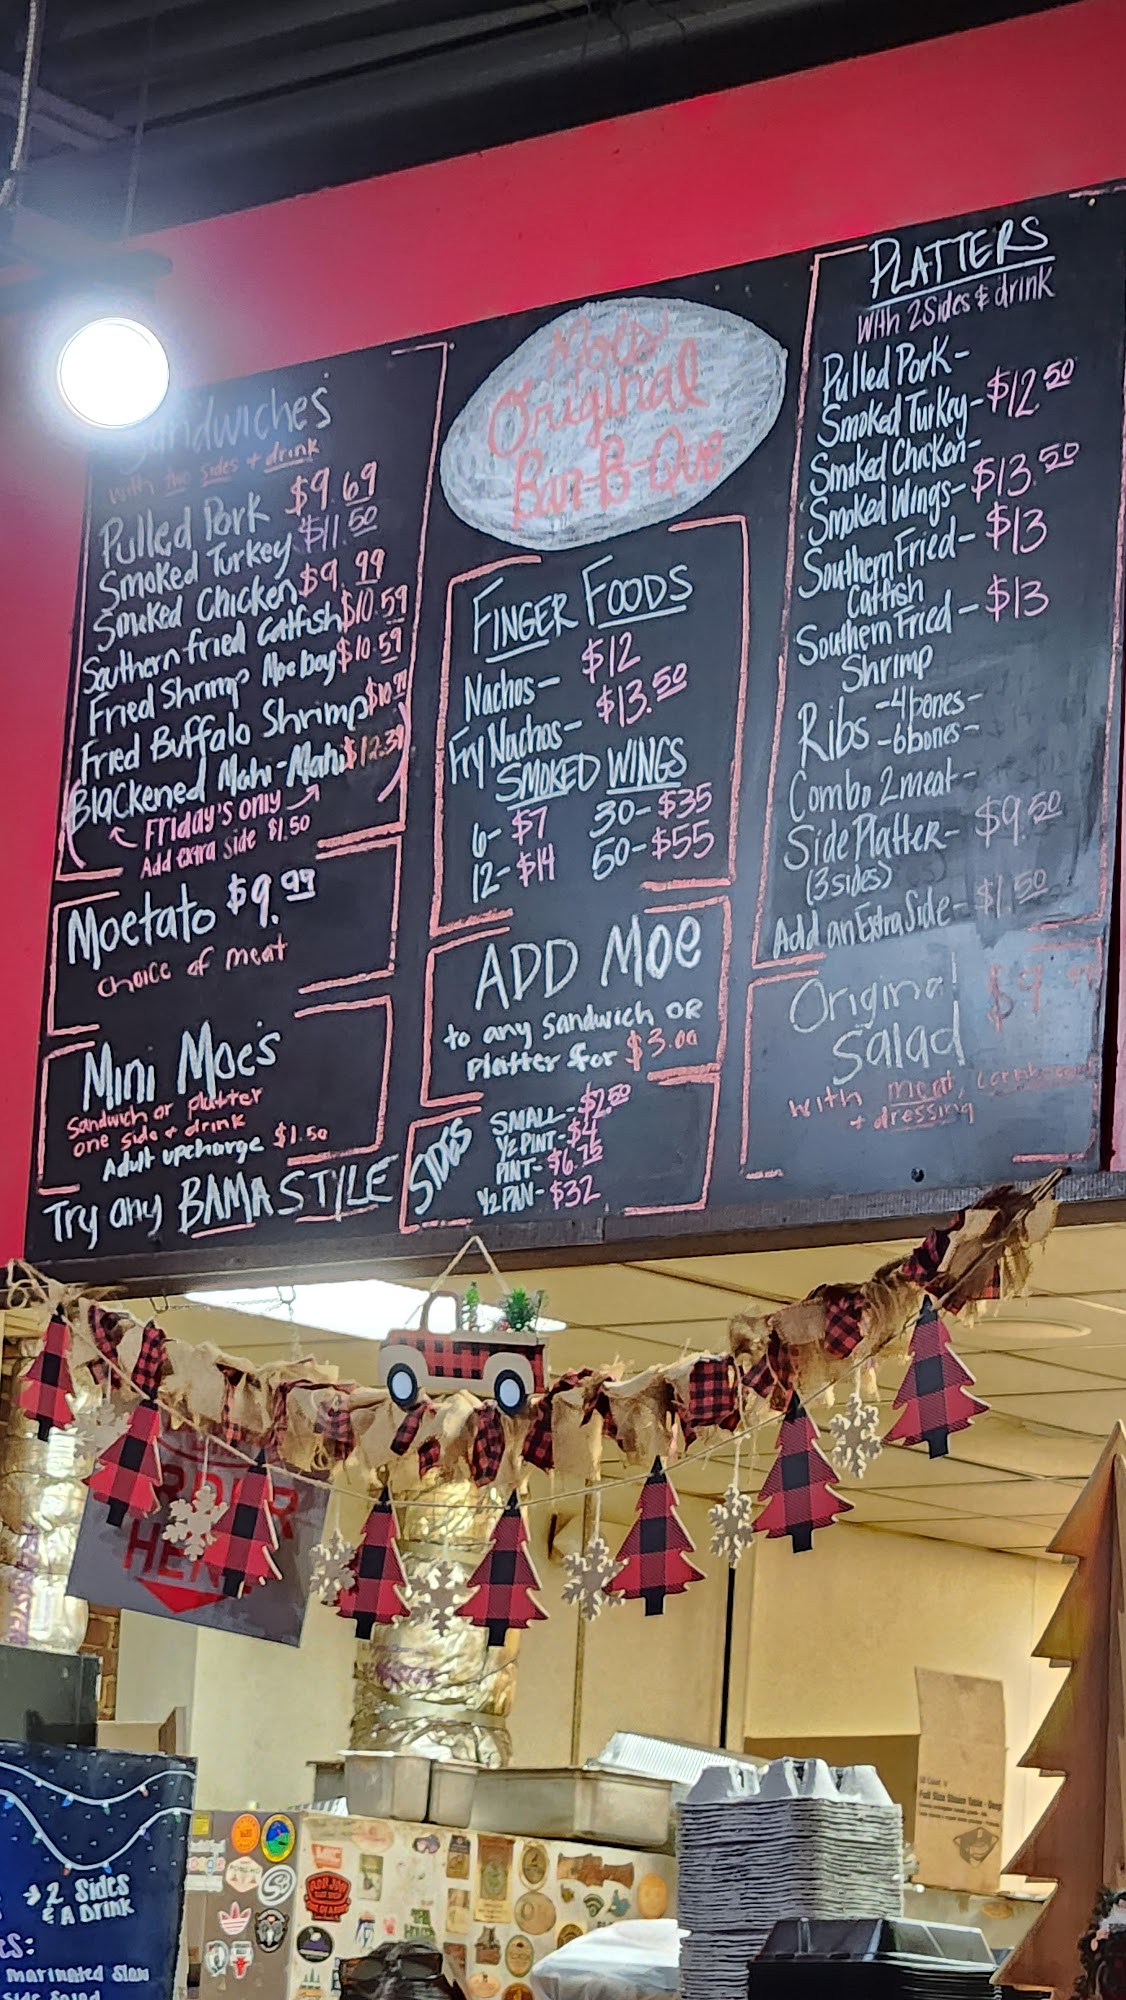 Sandwiches
with two sides + drink
Pulled Pork $9.69
Smoked Turkey $11.50
Smoked Chicken $9.99
Southern fried Catfish $10.59
Fried Shrimp Moe boy $10.59
Fried Buffalo Shrimp
Blackened Mahi-Mahi $12.39
Friday's only
Add extra side $1.50
Moetato $9.99
choice of meat
Mini Moe's
Sandwich or platter
one side + drink
Adult upcharge $1.50
Try any BAMA STYLE
Moe's
Original
Bar-B-Que
FINGER FOODS
Nachos- $12
Fry Nachos- $13.50
SMOKED WINGS
6- $7 30- $35
12- $14 50- $55
ADD MOE
to any sandwich OR
platter for $3.00
SIDES
SMALL- $2.50
1/2 PINT- $4
PINT- $6.75
1/2 PAN- $32
PLATTERS
With 2 Sides & drink
Pulled Pork-
Smoked Turkey- $12.50
Smoked Chicken-
Smoked Wings- $13.50
Southern Fried- $13
Catfish
Southern Fried- $13
Shrimp
Ribs -4 bones-
-6 bones-
Combo 2 meat-
Side Platter- $9.50
(3 sides)
Add an Extra Side- $1.50
Original
Salad
with meat,
+ dressing
ORDER
HERE
→ 2 Sides
& A Drink
marinated Slaw
Side Salad